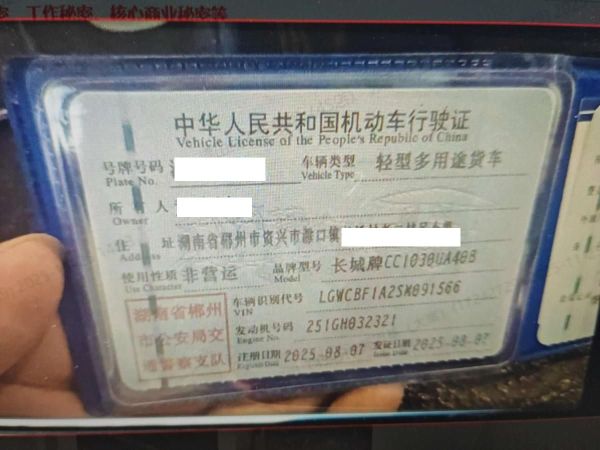 工作秘密、核心商业秘密等
中华人民共和国机动车行驶证
Vehicle License of the People's Republic of China
号牌号码
Plate No.
车辆类型 轻型多用途货车
Vehicle Type
所有人
Owner
住址 湖南省郴州市资兴市滁口镇
Address
使用性质 非营运
Use Character
品牌型号 长城牌CC1030UA40B
Model
湖南省郴州
市公安局交
通警察支队
车辆识别代号 LGWCBF1A2SM091566
VIN
发动机号码 251GH032321
Engine No.
注册日期 2025-08-07 发证日期 2025-08-07
Register Date Issue Date